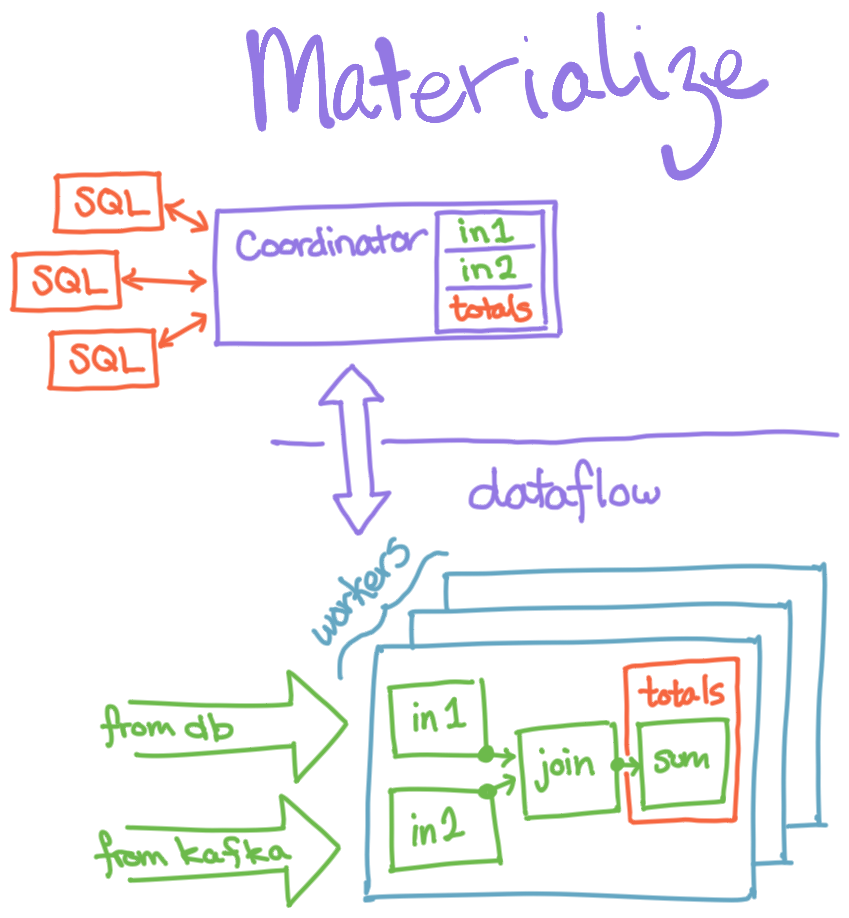 Materialize
SQL
SQL
SQL
Coordinator
in1
in2
totals
dataflow
workers
from db
from kafka
in1
in2
join
totals
sum